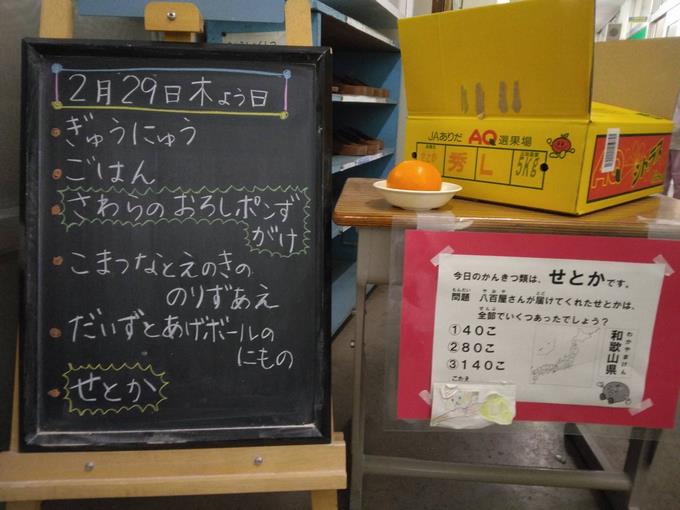 2月29日木よう日
ぎゅうにゅう
ごはん
さわらのおろしポンず
がけ
こまつなとえのきの
のりずあえ
だいずとあげボールの
にもの
せとか
JAありだ AQ 選果場
秀 L 5Kg
AQ
今日のかんきつ類は、せとかです。
問題 八百屋さんが届けてくれたせとかは、
全部でいくつあったでしょう？
①40こ
②80こ
③140こ
こたえ
わかやまけん
和歌山県